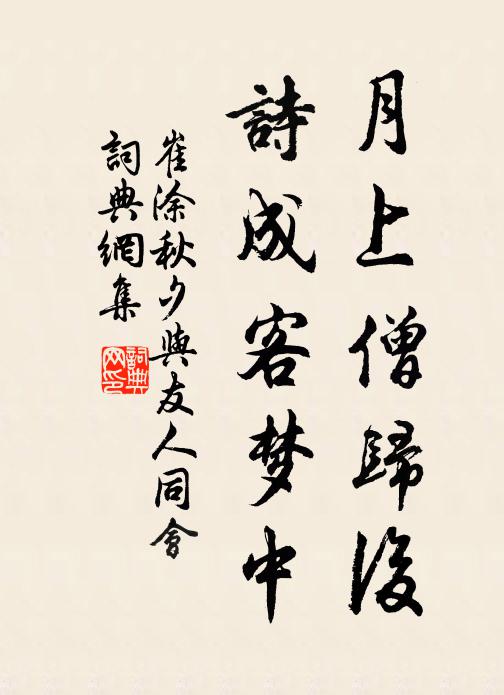 月上僧歸後
詩成客梦中
崔涂秋夕與友人同會
詞典網集
詞典网印